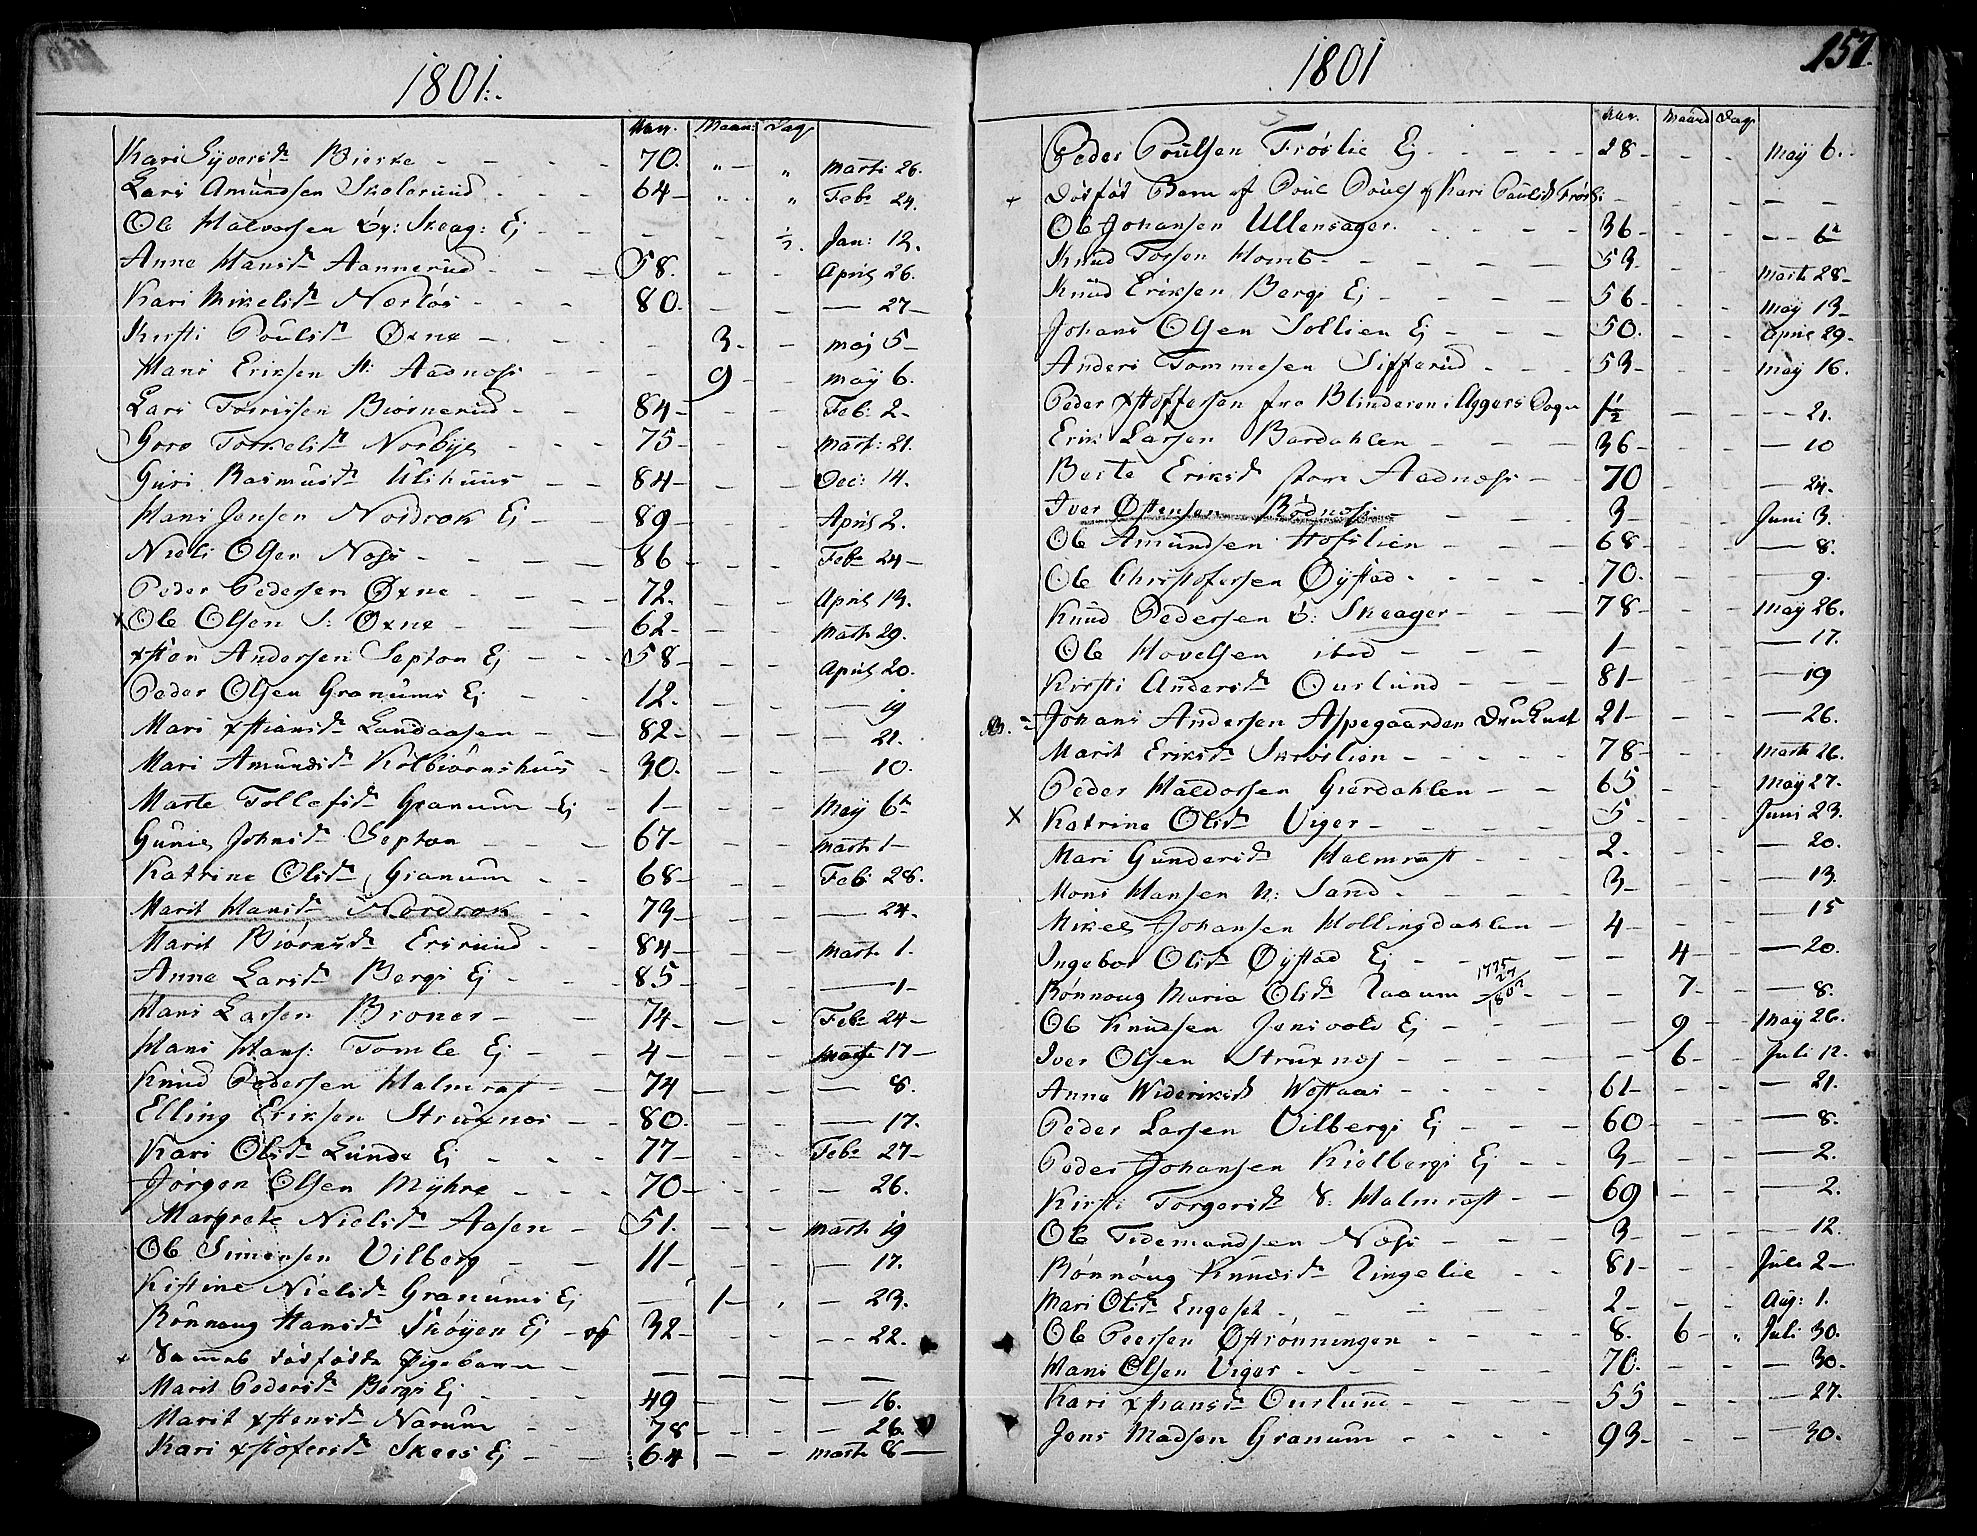 1801.
Aar. Maan: Dag
Kari Syversdr Bierke - - - 70. " - " Marti 26.
Lars Amundsen Skolerud - - - 64 - " " Febr 24.
Ole Halvorsen Skeag: Ej - - - - ½. Jan: 12.
Anne Hansdr Aannerud - - - 58. - - April 26.
Kari Mikelsdr - - - 80. - - — 27 -
Kirsti Poulsdr Øxne - - - 3 - - maj 5 -
Hans Eriksen st: Aadnæss - - - 9 - - maÿ 6.
Lars Biørnerud - - 84 - - - Feb: 2 -
Goro Torkelsdr Norbye - - - 75 - - - Mart: 21.
Guri Rasmusdr Ulshuus - - 84 - - - Dec: 14.
Hans Jensen Nordrok Ej - - 89 - - - April 2.
Niels Olsen Næss - - - 86 - - - Febr 24 -
Peder Pedersen Øxne - - - 72. - - April 13.
x Ole Olsen S: Øxne - - - 62 - - - Marti 29.
xsten Andersen Septon Ej - - - 58 - - - April 20.
Peder Olsen Granums Ej - - 12. - - — 19
Mari xstiansdr Landaasen - - 82 - - - — 21.
Mari Amundsdr Kolbiørnshuus - 30. - - — 10.
Marte Tollefsdr Granum Ej - 1 - - - Maÿ 6te
Guni Johnsdr Septon - - - 67 - - - Marti 1 -
Katrine Olsdr Granum - - 68 - - - Feb: 28.
Marit Hansdr Nordrok - - 73 - - - — 24.
Marit Biørnsdr Ersrud - - 84 - - - Marti 1.
Anne Larsdr Bergs Ej - - 85 - - - — 1 -
Hans Larsen Broner - - - 74 - - - Febr 24 -
Hans Hans: Tomle Ej - - 4 - - - Marti 17 -
Knud Pedersen Halmrast - - 74 - - - — 8.
Elling Eriksen Struxnæs - - 80. - - — 17.
Kari Olsdr Lunde Ej - - - 77 - - - Febr 27 -
Jørgen Olsen Mÿhre - - - 70 - - - — 26.
Margrete Nielsdr Aasen - 51. - - Marti 19
Ole Simensen Vilberg - - 11 - - - — 17.
Kistine Nielsdr Granums Ej — 1 - - — 23.
Rønnoug Hansdr Skøyen Ej - 32 - - - — 22.
x Sammes dødfødte Pigebarn - — — — —
Marit Pedersdr Bergs Ej - - - 49 - - - — 16.
Marit xstensdr Narum - - - 78 - - - — 26.
Kari xstofersdr Skees Ej - - - 64 - - Marti 8 -
1801 157.
Aar. Maaned Dag
Peder Poulsen Frøslie Ej - - - 28 - - - Maÿ 6.
x Dødfød Barn af Poul Pouls & Kari Paulsdr - - -
Ole Johansen Ullensager - - - 36 - - - — 6te
Knud Tossen Homb - - - 53 - - - Marti 28 -
Knud Eriksen Bergs Ej - - - 56 - - - Maÿ 13 -
Johans Olsen Sollien Ej - - - 50. - - April 29 -
Anders Tommesen Sifferud - - - 53 - - - Maÿ 16.
Peder xstoffersen fra Blinderen i Aggers Sogn 1½ - - — 21.
Erik Larsen Bardahlen - - - 36 - - - — 10
Berte Eriksdr store Aadnæss - 70 - - — 24.
Iver Østensen Rødnæss - - - 3 - - - Juni 3.
Ole Amundsen Hofslien - - - 68 - - - — 8.
Ole Christofersen Øystad - - - 70. - - — 9.
Knud Pedersen Skeager - - - 78 - - - Maÿ 26.
Ole Hovelsen ibid - - - 1 - - - — 17.
Kirsti Andersdr Ourlund - - - 81 - - - — 19
Johans Andersen Appegaarden Druknet 21 - - - — 26.
Marit Eriksdr Skrøslien - - - 78 - - - Marti 26.
Peder Haldorsen Gierdahlen - - 65 - - Maÿ 27.
x Katrine Olsdr Viger - - - 5 - - - Juni 23.
Mari Gundersdr Halmrast - - - 2. - - — 20.
Mons Hansen N: Sand - - - 3 - - - — 13.
Mikel Johansen Hollingdahlen - 4 - - - — 15
Ingebor Olsdr Øystad Ej - - - 4 - - — 20.
Rønnoug Maria Olsdr 1775 27 1802 - - 7 - - — 8.
Ole Knudsen Jensvold Ej - - - 9 - - Maÿ 26.
Iver Olsen Struxnæs - - - 6 - - Juli 12.
Anna Wideriksdr - - - 61 - - - — 21.
Peder Larsen Vilbergs Ej - - - 60 - - - — 8.
Peder Johansen Kielbergs Ej - - 3 - - - — 2.
Kirsti Torgersdr S. Halmrast - - 69 - - — 2.
Ole Tidemandsen Næss - - - 3 - - - — 12.
Rønnoug Knudsdr Lingelie - - 81 - - - Juli 2 -
Mari Olsdr Engeset - - - 2 - - - Aug: 1.
Ole Peersen Østrønningen - - - 8. 6 - " Juli 30.
Hans Olsen Viger - - - 70. - - — 30.
Kari xstiansdr Ourlund - - - 55 - - - — 27.
Jens Madsen Granum - - - 93 - - - — 30.